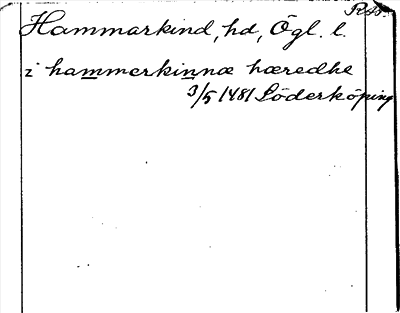 RAp.
Hammarkind, hd, Ögl. l.
i hammerkinnæ hæredhe
3/5 1481 Söderköping